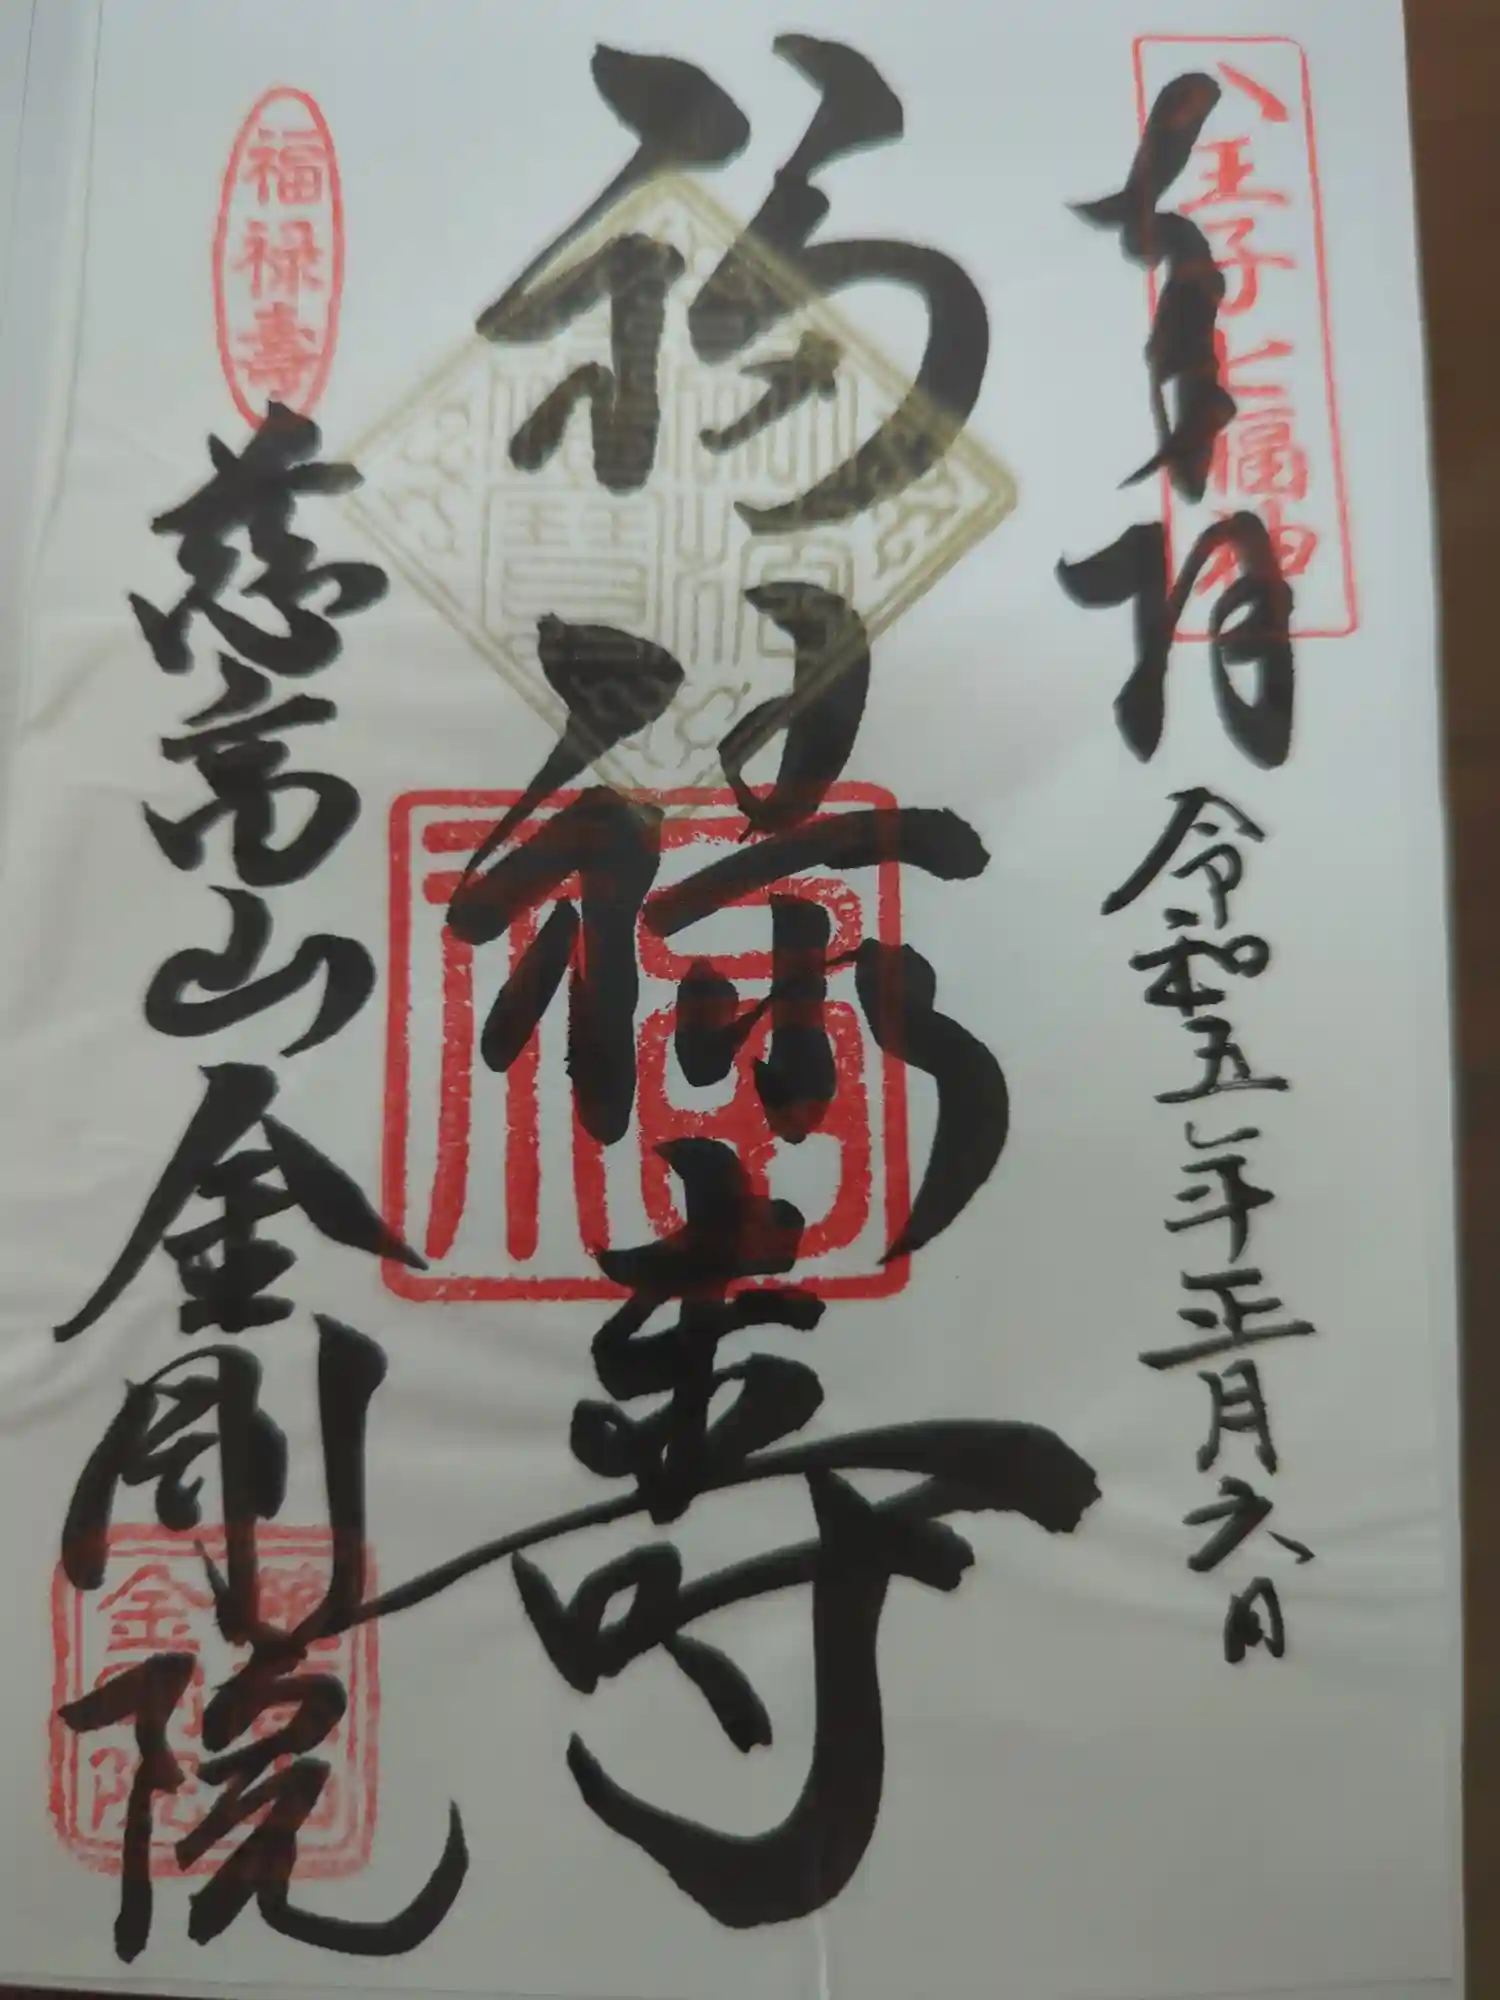 八王子七福神
奉拝
令和五年正月六日
福禄寿
福
福禄壽
慈高山金剛院